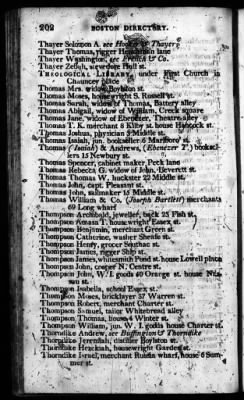 202 BOSTON DIRECTORY.
Thayer Solomon A. see Hooker & Thayer
Thayer Thomas, rigger Henderson lane
Thayer Washington, see French & Co.
Thayer Zebah, stevedore Hull st.
THEOLOGICAL LIBRARY, under First Church in
Chauncey place
Thomas Mrs. widow Boylston st.
Thomas Moses, housewright S. Russell st.
Thomas Sarah, widow of Thomas, Battery alley
Thomas Abigail, widow of William, Creek square
Thomas Jane, widow of Ebenezer, Theatre alley
Thomas T. K. merchant 8 Kilby st. house Hancock st.
Thomas Joshua, physician 3 Middle st.
Thomas Isaiah, jun. bookseller 6 Marlboro' st.
Thomas (Isaiah) & Andrews, (Ebenezer T.) booksel-
lers 15 Newbury st.
Thomas Spencer, cabinet maker Peck lane
Thomas Rebecca G. widow of John, Leverett st.
Thomas Thomas W. huckster 22 Middle st.
Thomas John, capt. Pleasant st.
Thomas John, sailmaker 15 Middle st.
Thomas William & Co. (Joseph Bartlett) merchants
69 Long wharf
Thompson Archibald, jeweller, back 25 Fish st.
Thompson Amasa T. housewright Essex st.
Thompson Benjamin, merchant Green st.
Thompson Catherine, washer Sheafe st.
Thompson Henry, grocer Southac st.
Thompson James, rigger Ship st.
Thompson James, whitesmith Pond st. house Lowell place
Thompson John, cooper N. Centre st.
Thompson John, W. I. goods 40 Orange st. house Nas-
sau st.
Thompson Isabella, school Essex st.
Thompson Moses, bricklayer 37 Warren st.
Thompson Robert, merchant Charter st.
Thompson Samuel, tailor Whitebread alley
Thompson Thomas, house 4 Winter st.
Thompson William, jun. W. I. goods house Charter st.
Thorndike Andrew, see Buffington & Thorndike
Thorndike Jeremiah, distiller Boylston st.
Thorndike Hezekiah, housewright Garden st.
Thorndike Israel, merchant Russia wharf, house 6 Sum-
mer st.